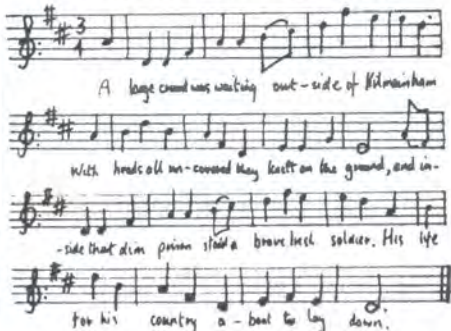 A large crowd was waiting out-side of Kilmainham
With heads all un-covered they knelt on the ground, and in-
-side that dim prison stood a brave Irish soldier. His life
for his country a-bout to lay down.